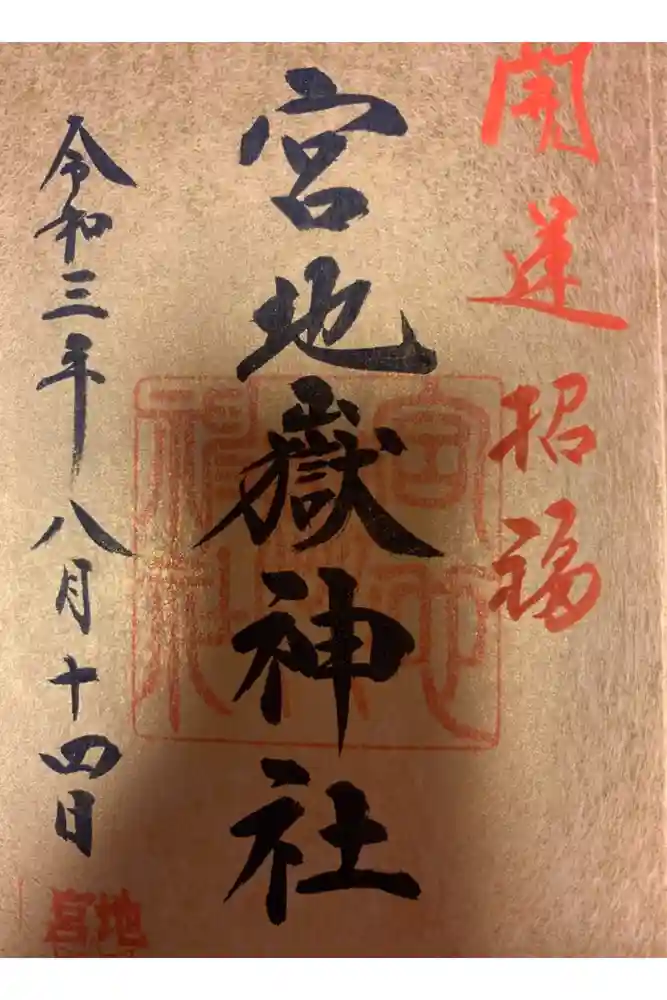 開運招福
宮地嶽神社
令和三年八月十四日
宮地